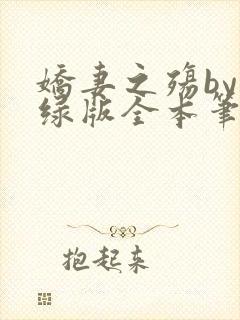 娇妻之殇by
绿版全本笔
抱起来